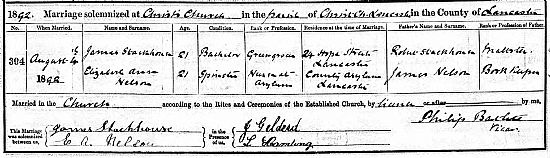 1892. Marriage solemnized at Christ Church in the parish of Christ Ch. Lancaster in the County of Lancaster
No. When Married. Name and Surname. Age. Condition. Rank or Profession. Residence at the time of Marriage. Father's Name and Surname. Rank or Profession of Father.
304 August 1892 James Stackhouse 21 Bachelor Greengrocer 24 Hope Street Lancaster Robert Stackhouse
Elizabeth Ann Nelson 21 Spinster Nurse at Asylum County Asylum Lancaster James Nelson Book Keeper
Married in the Church according to the Rites and Ceremonies of the Established Church, by licence or after by me,
This Marriage was solemnized between us, James Stackhouse E. A. Nelson in the Presence of us, J Gelderd L Philip Bartlett Vicar.